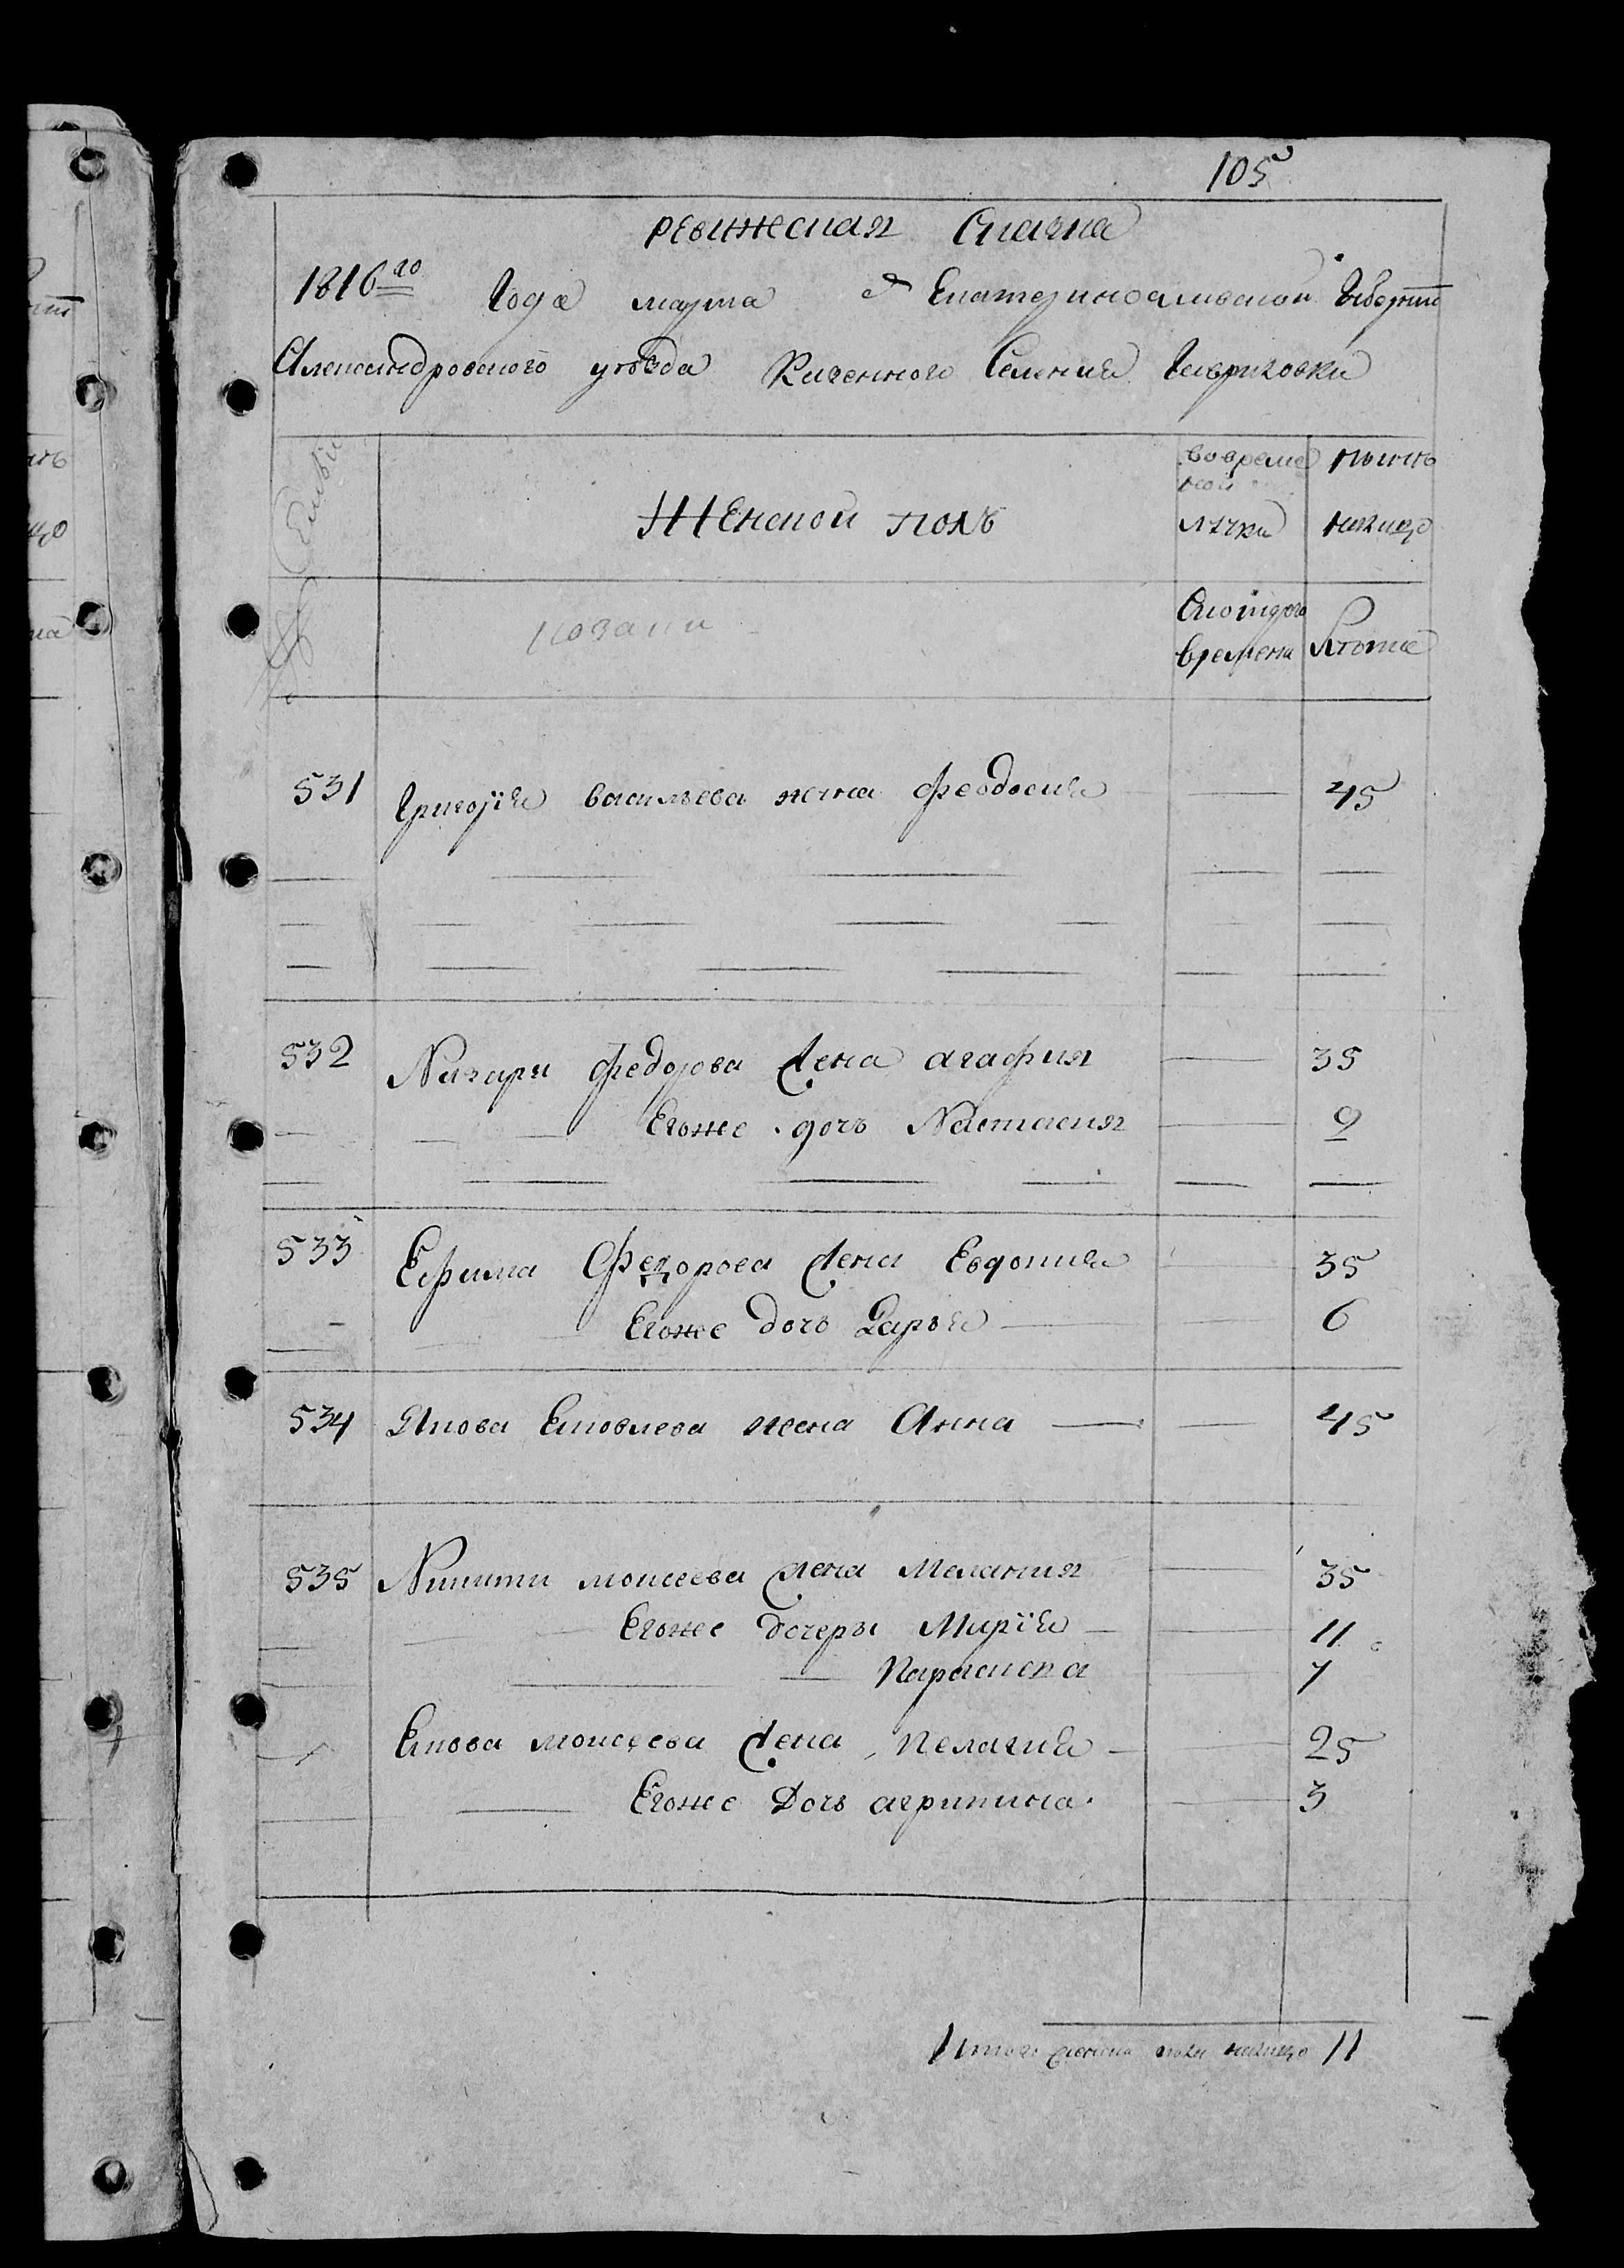 105
ревижская Скаска
1816го Года марта Екатеринославской Губернии
Александровского уезда Казенного Селения Гавриловки
Семьи
Женской полъ
вовремен
ной
лучки
ныне
налицо
козаки
Скоторого
времени
Лета
531 Григория васильева жена феодосия — 45
532 Назара федорова жена агафия — 35
Егоже дочь Настасия — 9
533 Ефима Федорова жена Евдокия — 35
Егоже дочь Дарья — 6
534 Якова Яковлева жена Анна — 45
535 Никиты моисеева жена Мелания — 35
Егоже дочеры Мария — 11
Параскева 7
Якова моисеева жена пелагия — 25
Егоже Дочь агрипина — 3
Итого женска пола налицо 11